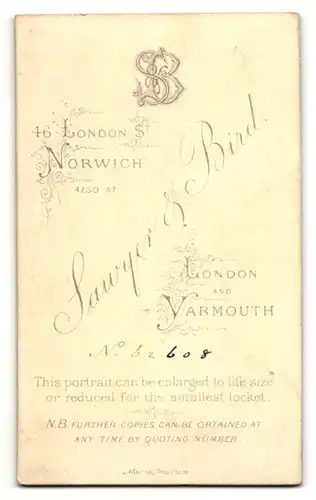 SB
46 LONDON St
NORWICH
ALSO AT
Sawyer & Bird.
LONDON
AND
YARMOUTH
No 62608
This portrait can be enlarged to life size
or reduced for the smallest locket.
N.B. FURTHER COPIES CAN BE OBTAINED AT
ANY TIME BY QUOTING NUMBER.